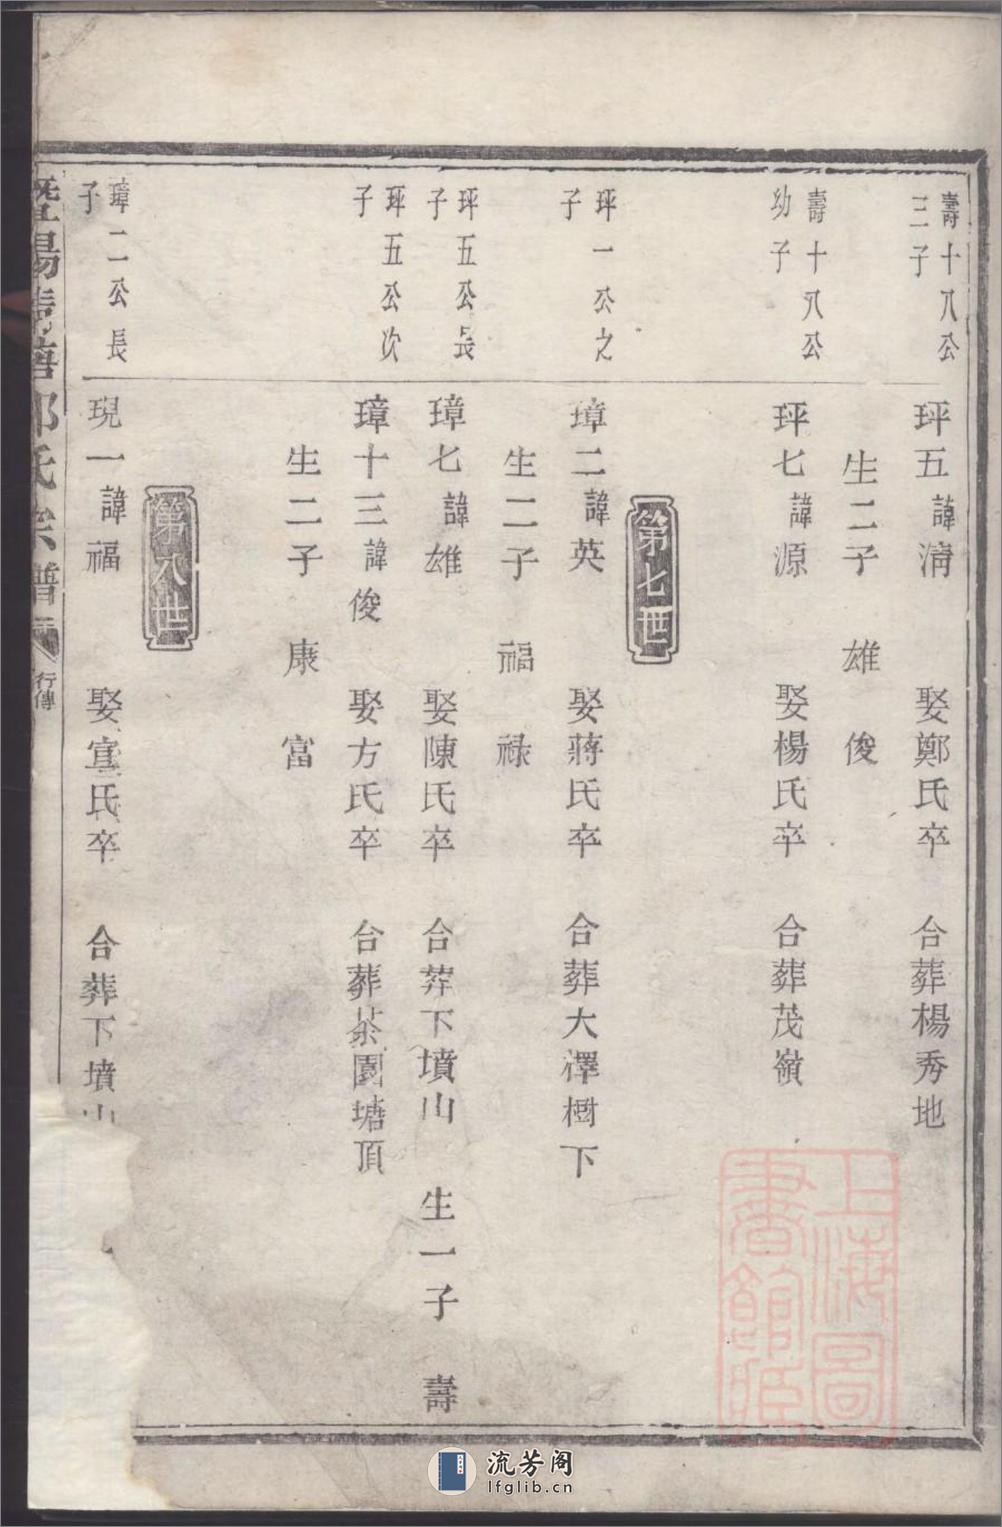 壽十八公
三子
玶五諱淸　娶鄭氏卒　合葬楊秀地
生二子　雄　俊
壽十八公
幼子
玶七諱源　娶楊氏卒　合葬茂嶺
第七世
玶一公之
子
璋二諱英　娶蔣氏卒　合葬大澤樹下
生二子　福　祿
玶五公長
子
璋七諱雄　娶陳氏卒　合葬下墳山　生一子　壽
玶五公次
子
璋十三諱俊　娶方氏卒　合葬茶園塘頂
生二子　康　富
第八世
璋二公長
子
現一諱福　娶宣氏卒　合葬下墳山
暨陽 氏宗譜
行傳
上海圖
書館藏
流芳阁
lfglib.cn